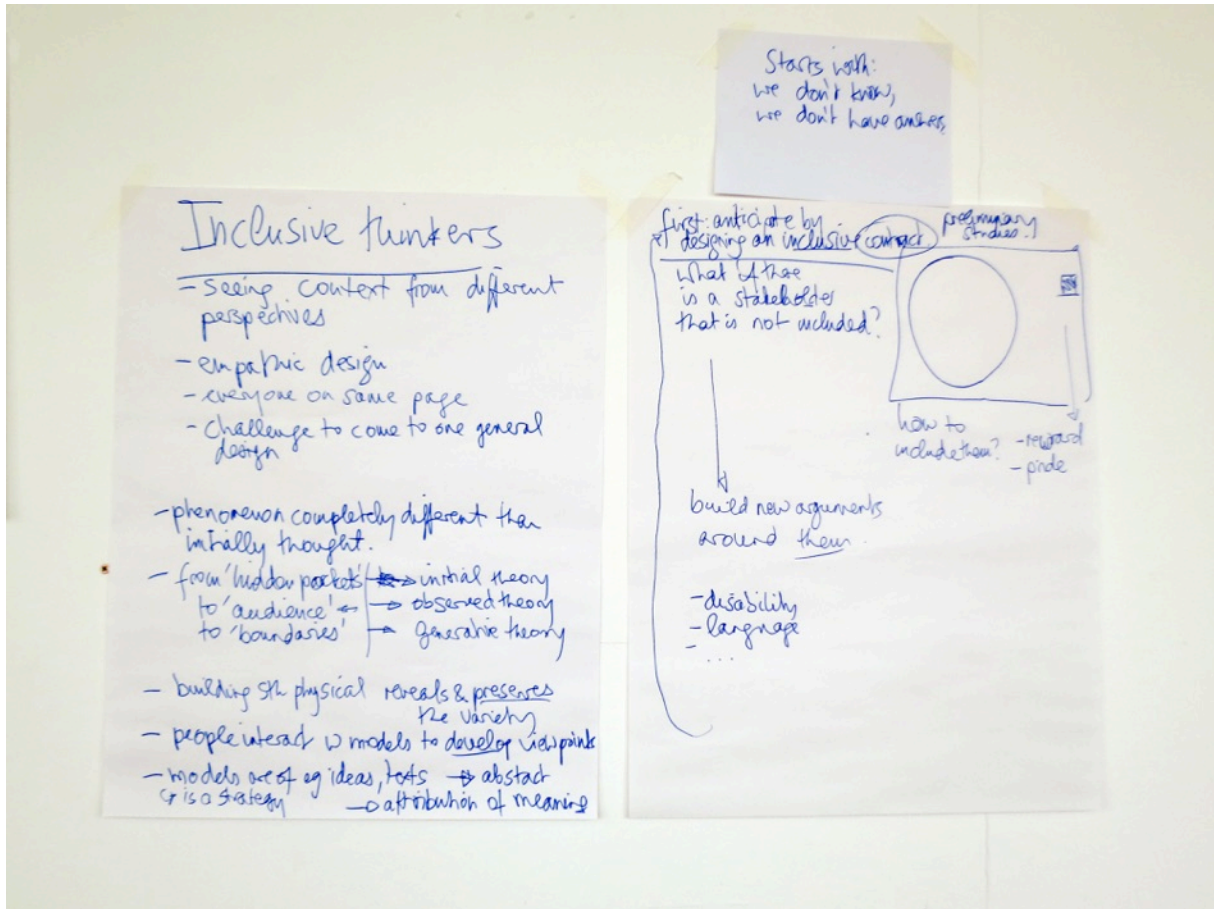 Starts with:
we don't know,
we don't have answers
Inclusive thinkers
- seeing context from different
perspectives
- empathic design
- everyone on same page
- challenge to come to one general
design
- phenomenon completely different than
initially thought.
- from 'hidden pockets' → initial theory
to 'audience' ← → observed theory
to 'boundaries' → generative theory
- building sth physical reveals & preserves
the variety
- people interact w models to develop viewpoints
- models are of eg ideas, texts → abstact
↳ is a strategy → attribution of meaning
first: anticipate by
designing an inclusive contract
preliminary
studies.
what if there
is a stakeholder
that is not included?
how to
include them?
- reward
- pride
build new arguments
around them.
- disability
- language
- ...